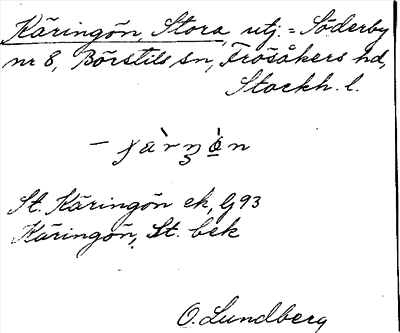 Käringön, Stora, utj. = Söderby
nr 8, Börstils sn, Frösåkers hd,
Stockh. l.
St. Käringön ek, G 93
Käringön, St. bek
O. Lundberg